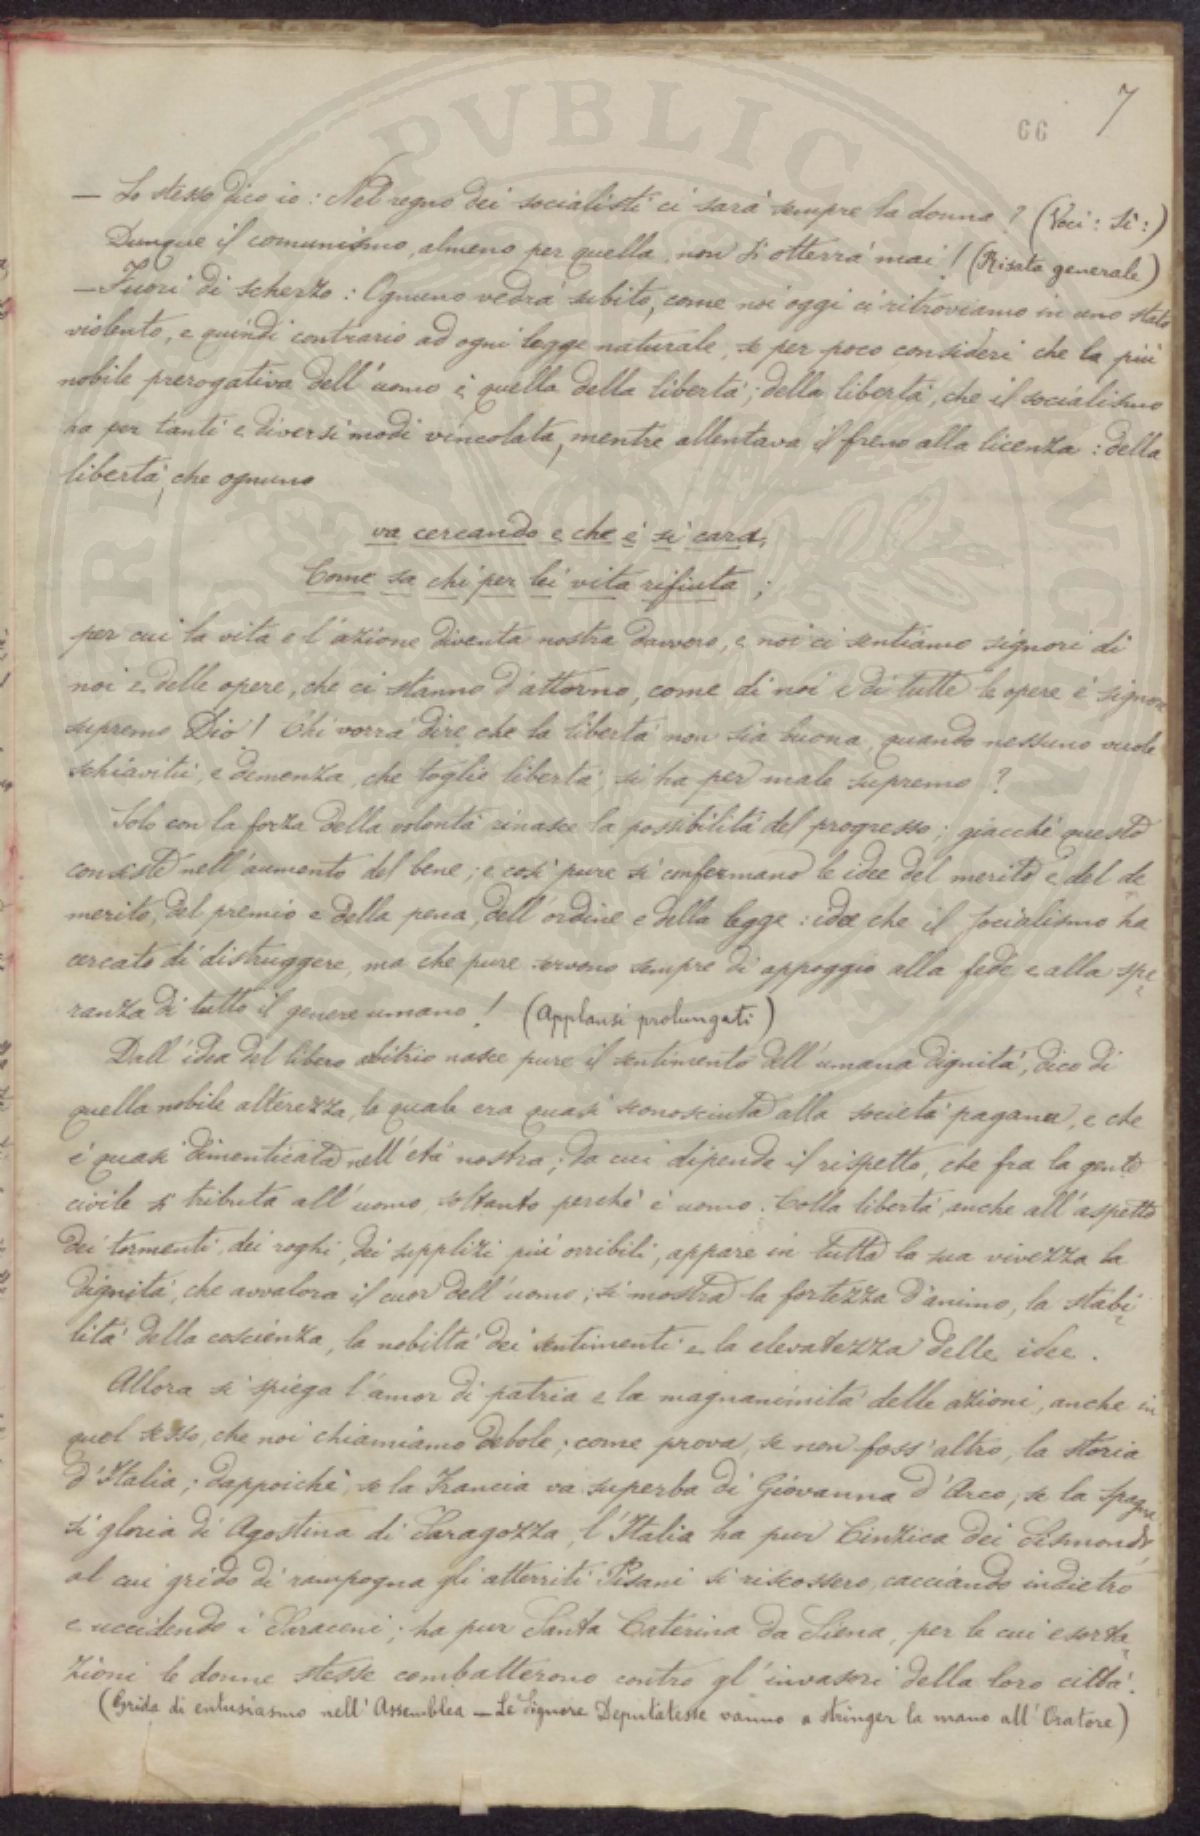 7
66
— Lo stesso dico io: Nel regno dei socialisti ci sarà sempre la donna? (Voci: Sì:)
Dunque il comunismo, almeno per quella, non si otterrà mai! (Risata generale)
— Fuori di scherzo: Ognuno vedrà subito, come noi oggi ci ritroviamo in uno stato
violento, e quindi contrario ad ogni legge naturale, se per poco consideri che la più
nobile prerogativa dell'uomo è quella della libertà; della libertà, che il socialismo
ha per tanti e diversi modi vincolata, mentre allentava il freno alla licenza: della
libertà, che ognuno
va cercando e che è sì cara,
Come sa chi per lei vita rifiuta;
per cui la vita e l'azione diventa nostra davvero, e noi ci sentiamo signori di
noi e delle opere, che ci stanno d'attorno, come di noi e di tutte le opere è signore
supremo Dio! Chi vorrà dire che la libertà non sia buona, quando nessuno vuole
schiavitù, e demenza, che toglie libertà, si ha per male supremo?
Solo con la forza della volontà rinasce la possibilità del progresso; giacchè questo
consiste nell'aumento del bene; e così pure si confermano le idee del merito e del de
merito, del premio e della pena, dell'ordine e della legge: idee che il socialismo ha
cercato di distruggere, ma che pure servono sempre di appoggio alla fede e alla spe
ranza di tutto il genere umano! (Applausi prolungati)
Dall'idea del libero arbitrio nasce pure il sentimento dell'umana dignità, dico di
quella nobile alterezza, la quale era quasi sconosciuta alla società pagana, e che
è quasi dimenticata nell'età nostra; da cui dipende il rispetto, che fra la gente
civile si tributa all'uomo, soltanto perchè è uomo. Colla libertà, anche all'aspetto
dei tormenti, dei roghi, dei supplizi più orribili, appare in tutta la sua vivezza la
dignità, che avvalora il cuor dell'uomo; si mostra la fortezza d'animo, la stabi
lità della coscienza, la nobiltà dei sentimenti e la elevatezza delle idee.
Allora si spiega l'amor di patria e la magnanimità delle azioni, anche in
quel sesso, che noi chiamiamo debole; come prova, se non foss'altro, la storia
d'Italia; dappoichè, se la Francia va superba di Giovanna d'Arco, se la Spagna
si gloria di Agostina di Saragozza, l'Italia ha pur Cinzica dei Sismondi,
al cui grido di rampogna gli atterriti Pisani si riscossero, cacciando indietro
e uccidendo i Saraceni; ha pur Santa Caterina da Siena, per le cui esorta
zioni le donne stesse combatterono contro gl'invasori della loro città.
(Grida di entusiasmo nell'Assemblea — Le Signore Deputatesse vanno a stringer la mano all'Oratore)